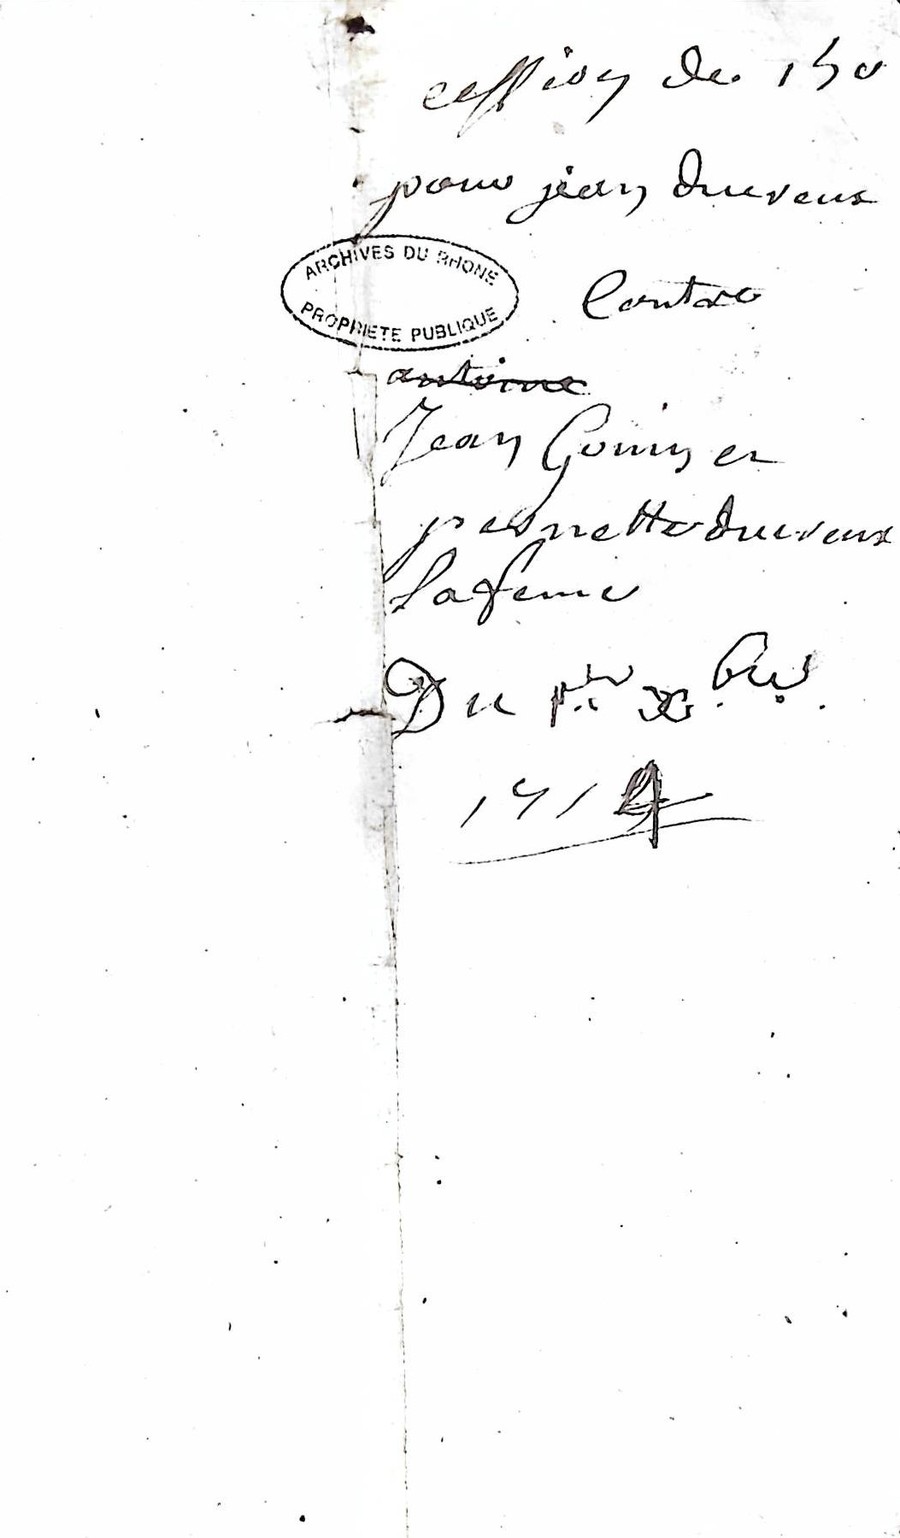 cession de 150
pour jean duureux
ARCHIVES DU RHONE
PROPRIETE PUBLIQUE
Contre
antoine
Jean Gonin et
pernette duureux
sa feme
Du p.er Xbre
1714